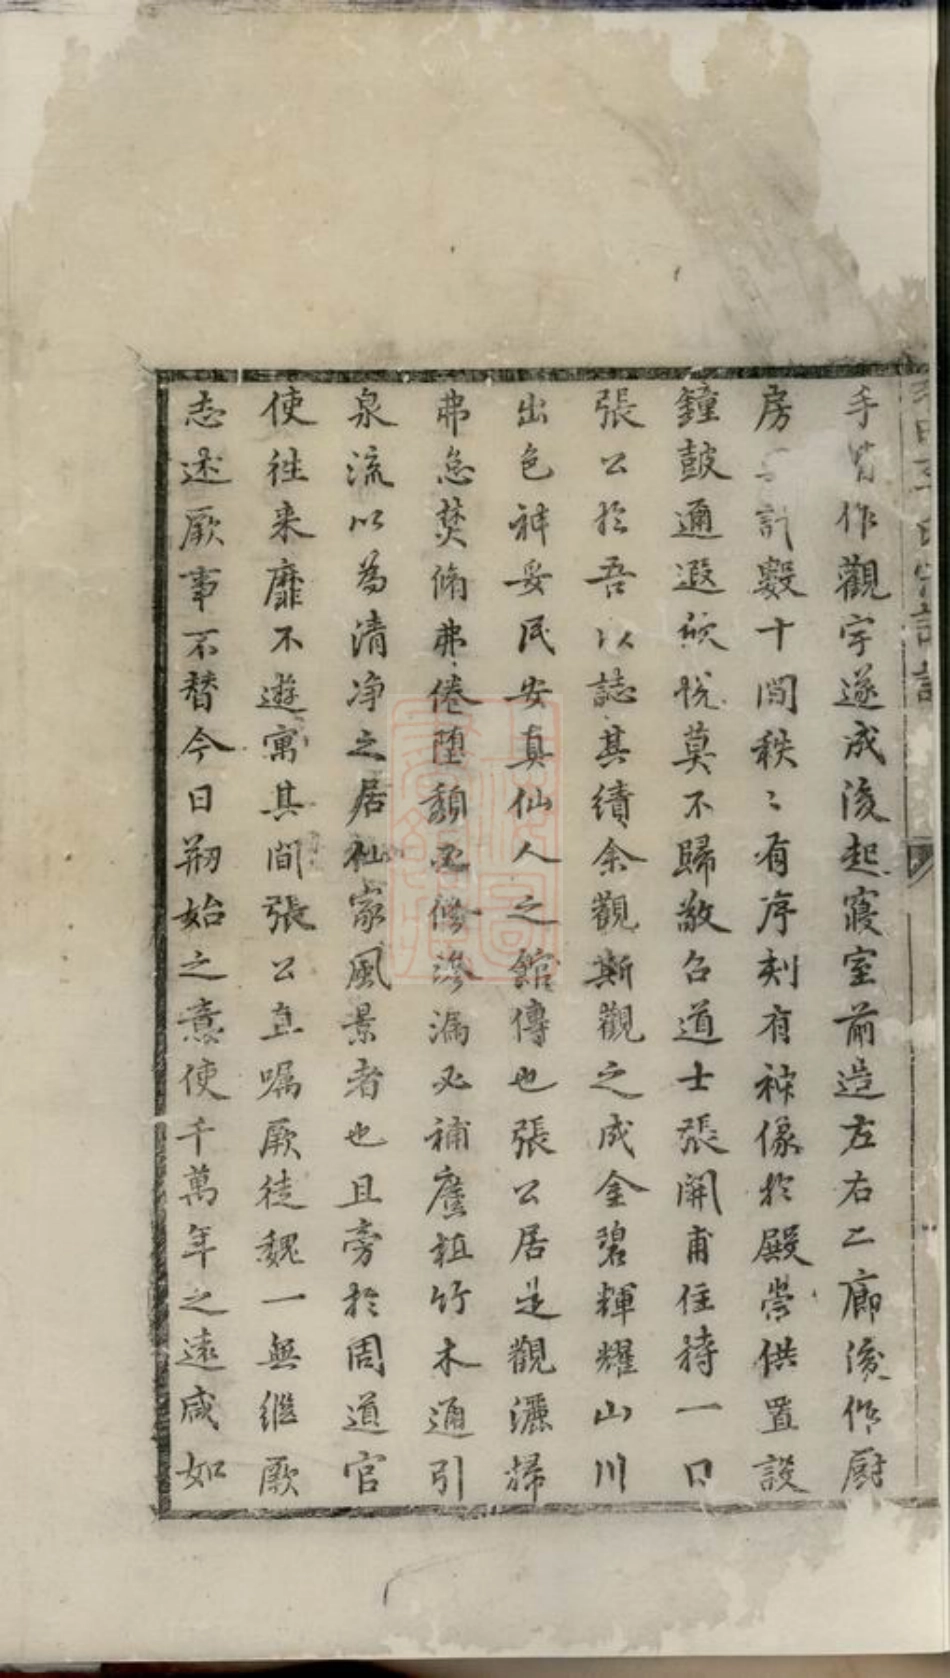 手 作觀宇遂成後起寢室前造左右二廊後作廚
房 計數十間秩〻有序刻有神像於殿崇供置設
鐘鼓邇遐欣悅莫不歸敬召道士張開甫住持一日
張公於吾以誌其績余觀斯觀之成金碧輝耀山川
出色神妥民安真仙人之館傳也張公居是觀灑掃
弗怠焚脩弗倦墮頹必修滲漏必補廬植竹木通引
泉流以為清净之居仙家風景者也且旁於周道官
使往来靡不遊寓其間張公且嘱厥徒魏一無繼厥
志述厥事不替今日剏始之意使千萬年之遠咸如